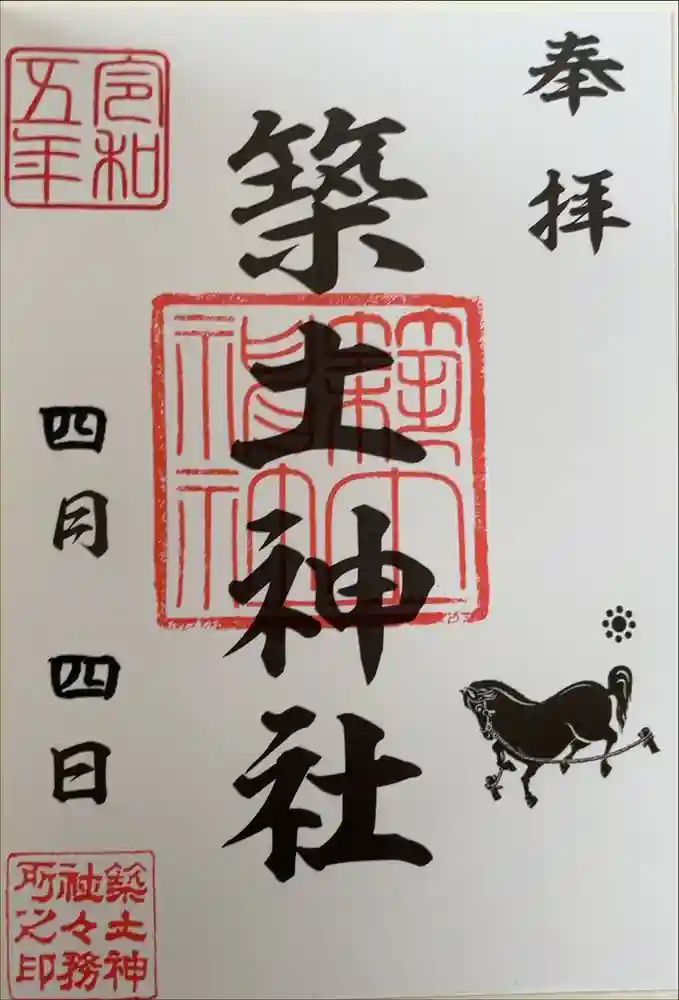 奉拝
築土神社
築土神社
令和
五年
四月四日
築土神
社々務
所之印